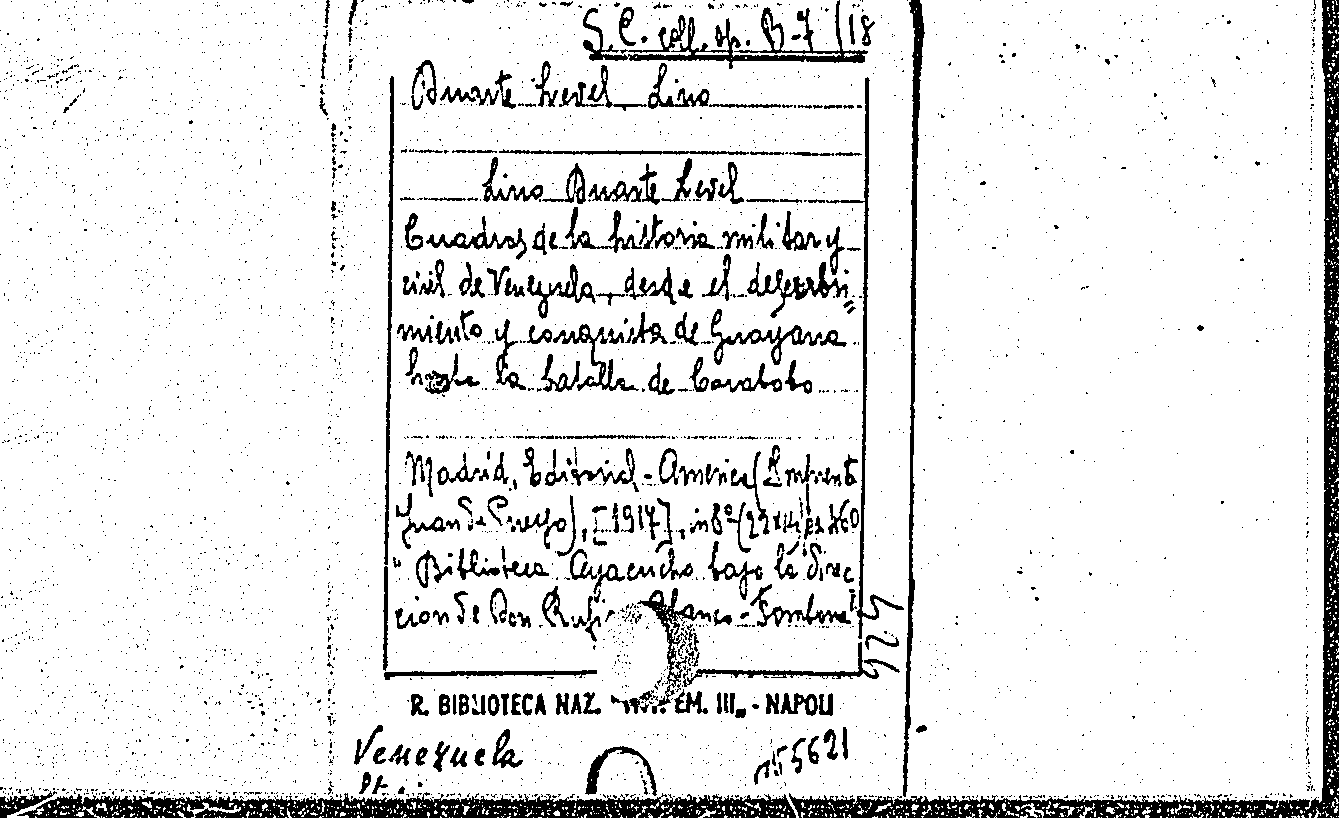 S. C. coll. sp. B-7/18
Duarte Level, Lino
Lino Duarte Level
Cuadros de la historia militar y
civil de Venezuela, desde el descubri=
miento y conquista de Guayana
hasta la batalla de Carabobo
Madrid, Editorial-America (Imprenta
Juan de Pueyo), [1917], in 8º (22x14) pp. 460
"Biblioteca Ayacucho bajo la direc=
cion de Don Rufino Blanco-Fombona"
924
R. BIBLIOTECA NAZ. EM. III„ - NAPOLI
Venezuela
55621